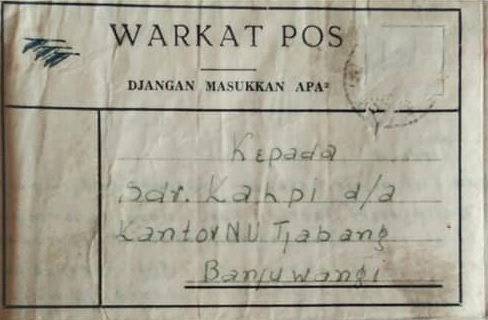 WARKAT POS
DJANGAN MASUKKAN APA²
Kepada
Sdr. Kahpi d/a
Kantor NU Tjabang
Banjuwangi